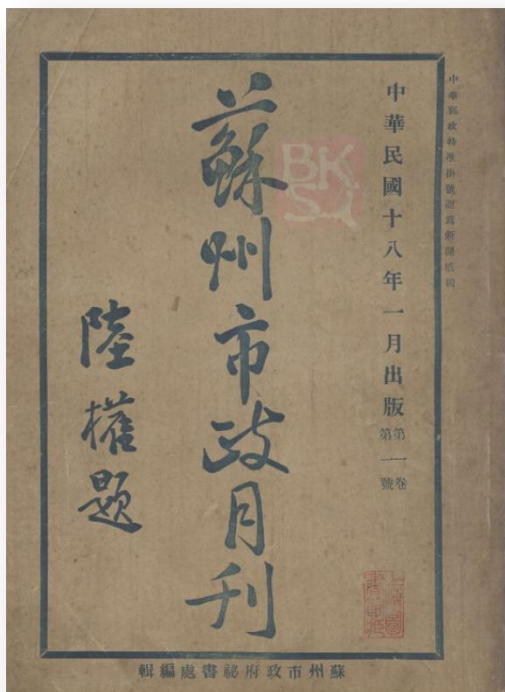 中華郵政特准掛號認爲新聞紙類
中華民國十八年一月出版
第一卷
第一號
蘇州市政月刊
陸權題
蘇州市政府祕書處編輯